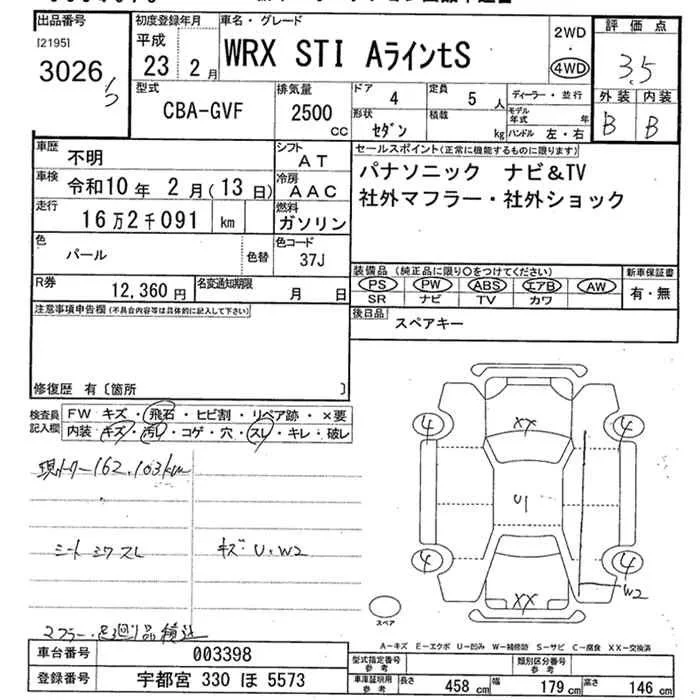 出品番号
[21951
3026
初度登録年月
平成
23 2月
車名・グレード
WRX STI AラインtS
2WD
・
4WD
評価点
3.5
外装 内装
B B
型式
CBA-GVF
排気量
2500
cc
ドア 4
定員 5人
形状 セダン
積載 kg
ディーラー・並行
モデル年式 年
ハンドル 左・右
車歴 不明
車検 令和10年 2月(13日)
走行 16万2千091 km
シフト AT
冷房 AAC
燃料 ガソリン
色 パール 色替
色コード 37J
R券 12,360円
名変通知期限 月 日
セールスポイント(正常に機能するものに限ります)
パナソニック ナビ&TV
社外マフラー・社外ショック
装備品(純正品に限り○をつけてください)
PS PW ABS エアB AW
SR ナビ TV カワ
新車保証書
有・無
後日品
スペアキー
注意事項申告欄(不具合内容等は具体的に記入して下さい)
修復歴 有〔箇所 〕
検査員記入欄
FW キズ・飛石・ヒビ割・リペア跡・×要
内装・キズ・汚レ・コゲ・穴・スレ・キレ・破レ
現メーター162,103km
シート シワスレ
キズ・U・W2
マフラー・足回り品積込
4 XX 4
U1
4 XX 4
W2
スペア
A-キズ E-エクボ U-凹み W-補修跡 S-サビ C-腐食 XX-交換済
車台番号 003398
登録番号 宇都宮 330 ほ 5573
型式指定番号 参考
類別区分番号 参考
車庫証明用 参考
長さ 458 cm
幅 179 cm
高さ 146 cm